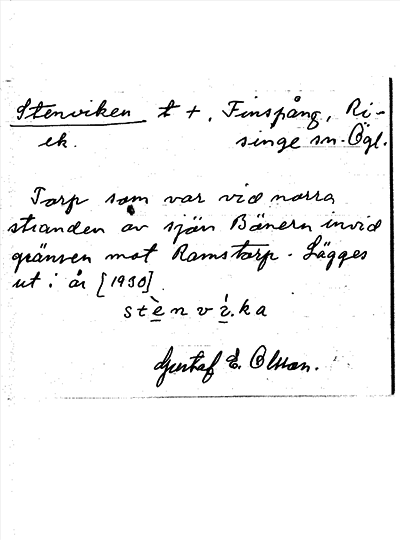 Stenviken t +, Finspång, Ri-
ek. singe sn. Ögl.
Torp som var vid norra
stranden av sjön Bönern invid
gränsen mot Ramstorp. Lägges
ut i år [1930]
stènvi̇́.ka
Gustaf E. Olsson.